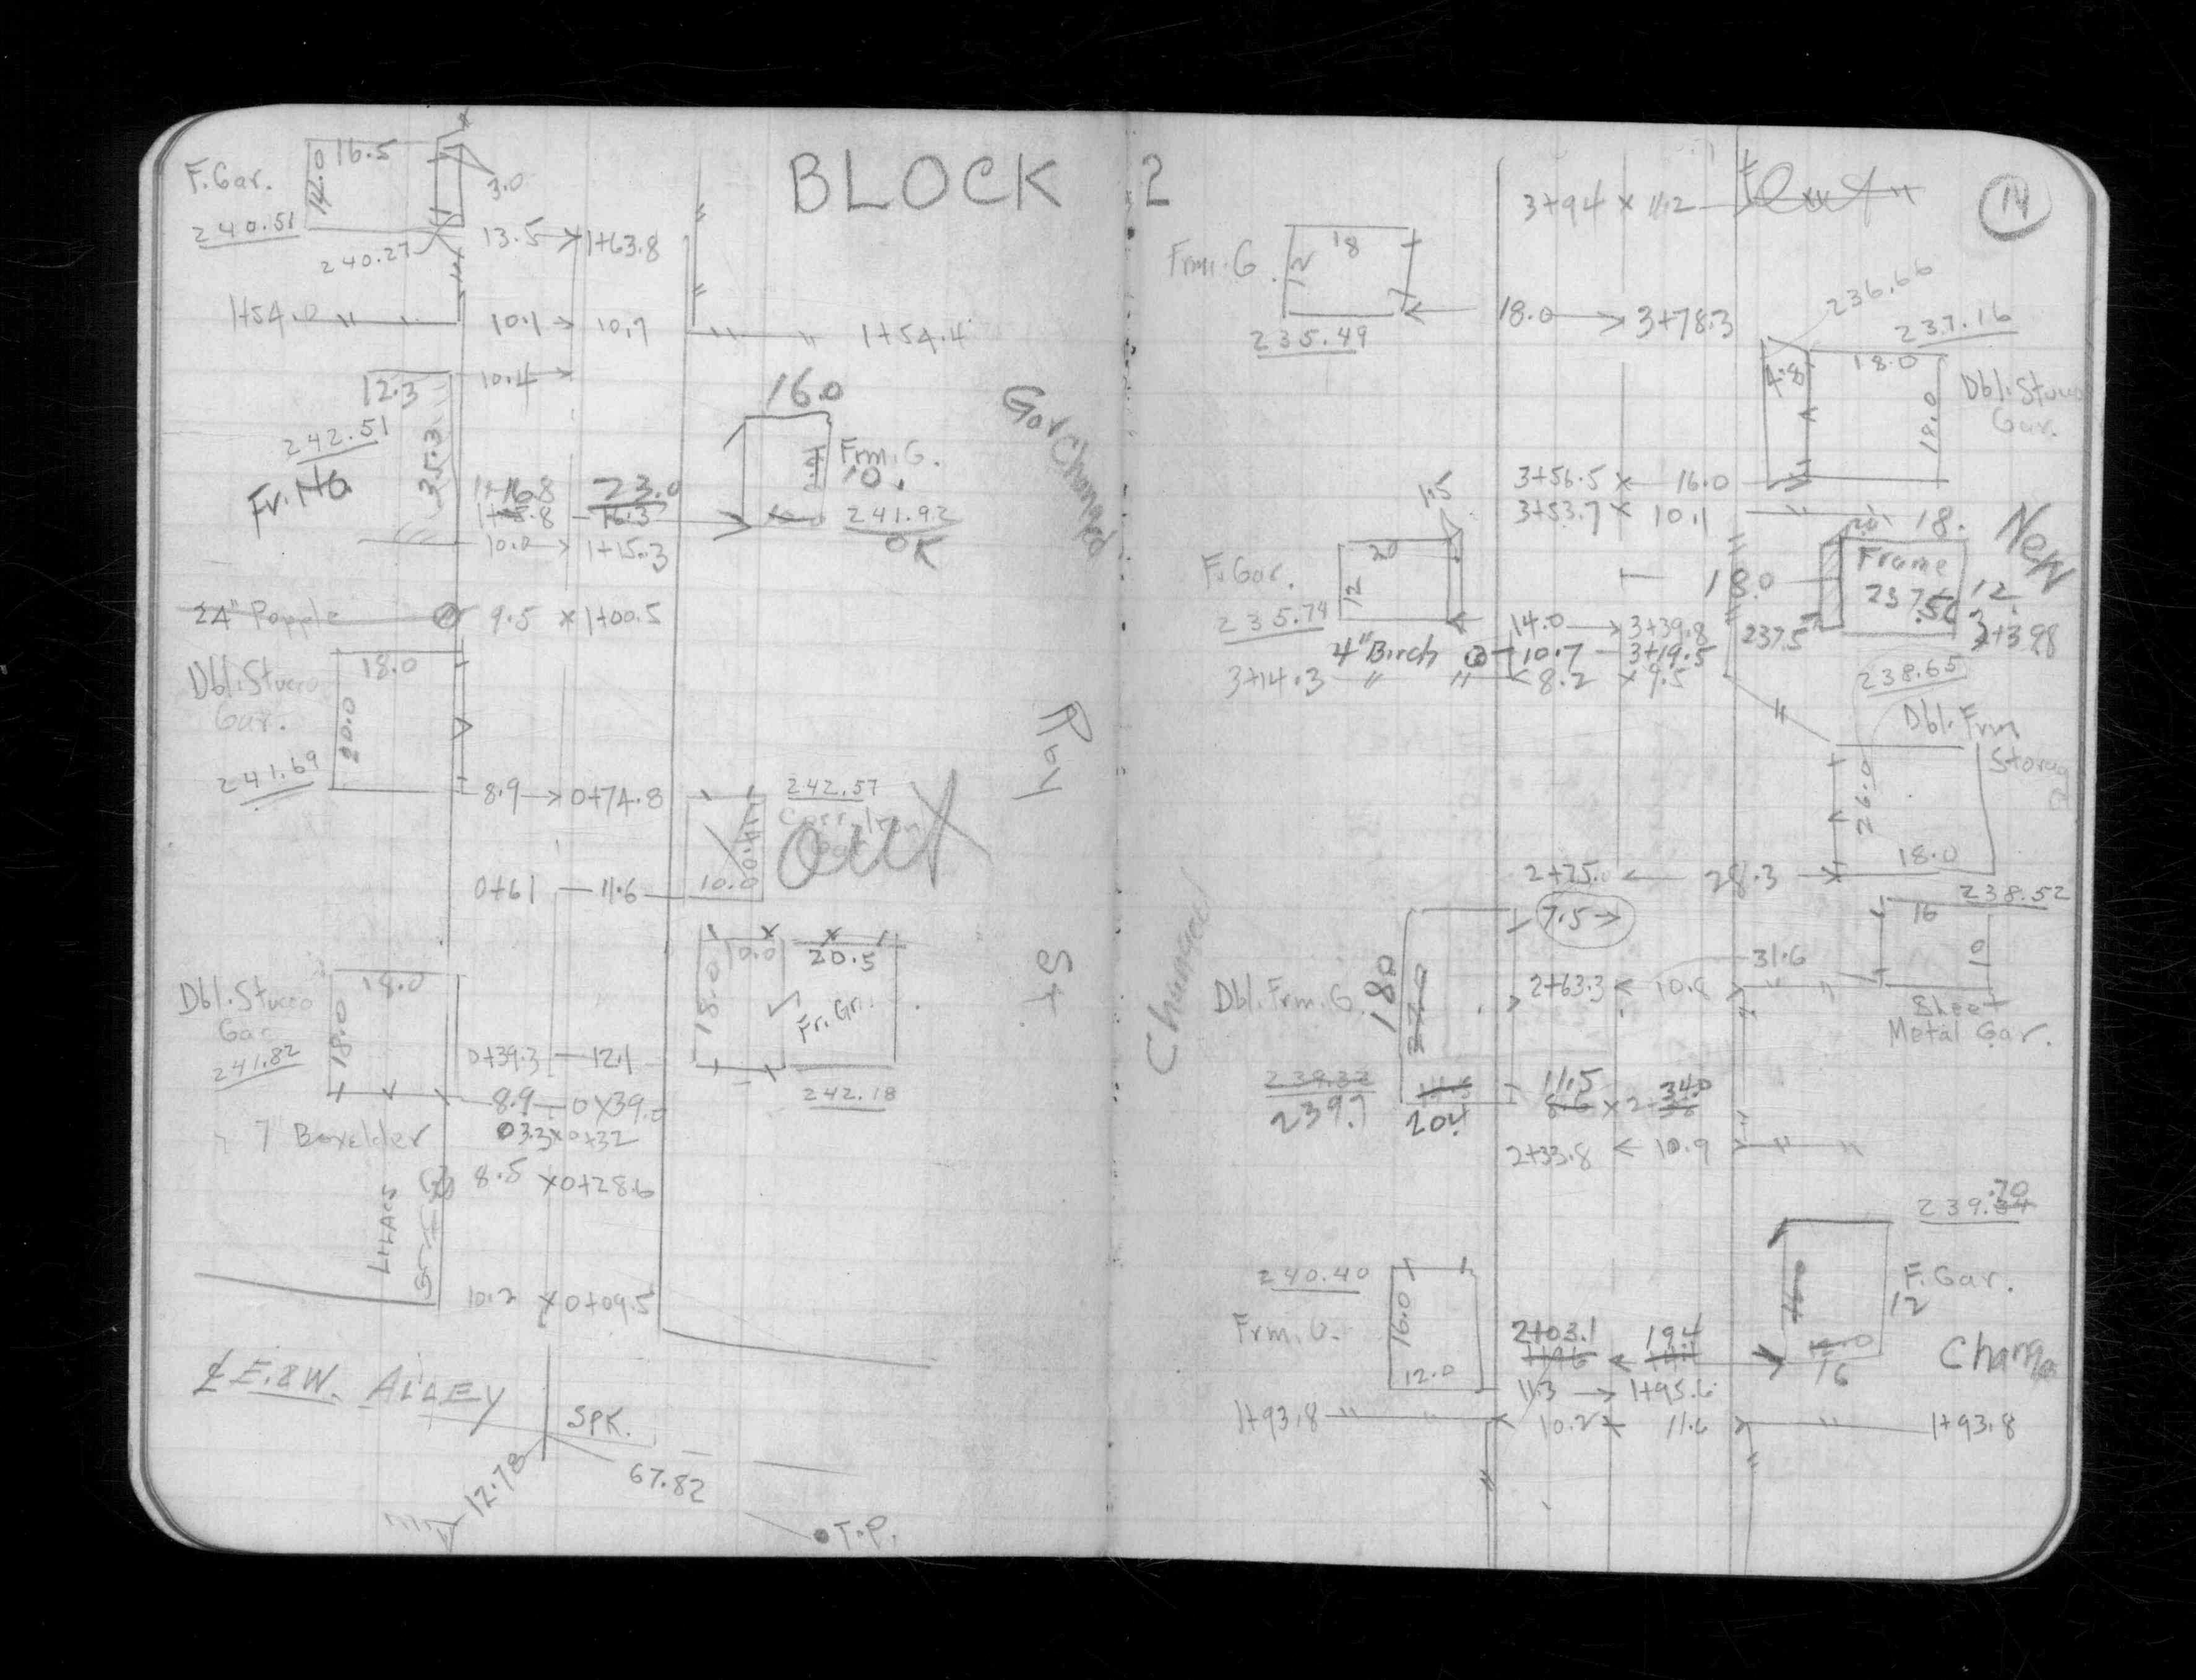 BLOCK 2
14
F. Gar.
14.0
16.5
3.0
240.51
240.27
13.5 → 1+63.8
1+54.0
10.1 → 10.7
1+54.4
12.3
10.4 →
242.51
35.3
16.0
Frm. G.
10.
241.92
OK
Gar Changed
1+16.8 23.0
16.3
10.0 → 1+15.3
24" Popple
9.5 × 1+00.5
Dbl. Stucco
Gar.
18.0
20.0
241.69
8.9 → 0+74.8
242.57
out
10.0
0+61 — 11.6
Ray
St.
Dbl. Stucco
Gar
18.0
18.0
241.82
18.0
20.5
Fr. Gr.
242.18
0+39.3 — 12.1
8.9 — 0×39.0
7 Boxelder
03.3×0+32
8.5 × 0+28.6
LILACS
10.2 × 0+09.5
℄ E. & W. ALLEY
SPK.
12.78
67.82
T.P.
3+94 × 11.2
out
Frm. G.
18
12
235.49
18.0 → 3+78.3
236.66
237.16
4.8
18.0
18.0
Dbl. Stucco
Gar.
3+56.5 × 16.0
3+53.7 × 10.1
1.5
F. Gar.
20
12
235.74
18.0
18.
Frame
12
New
14.0 → 3+39.8
237.5
3+398
4" Birch
10.7 — 3+19.5
3+14.3
8.2 × 9.5
238.65
Dbl. Frm
Storag
26.0
18.0
2+75.0 ← 28.3 →
238.52
7.5 →
16
10
31.6
Changed
Dbl. Frm. G.
180
2+63.3 ← 10.8 →
Sheet
Metal Gar.
239.32
239.7
204
11.5
8.6 × 2+
34.0
2+33.8 ← 10.9 →
239.
.70
240.40
Frm. G.
16.0
12.0
F. Gar.
12
16
2+03.1 19.4
1+96
11.3 → 1+95.6
Change
1+93.8
10.2 × 11.6
1+93.8